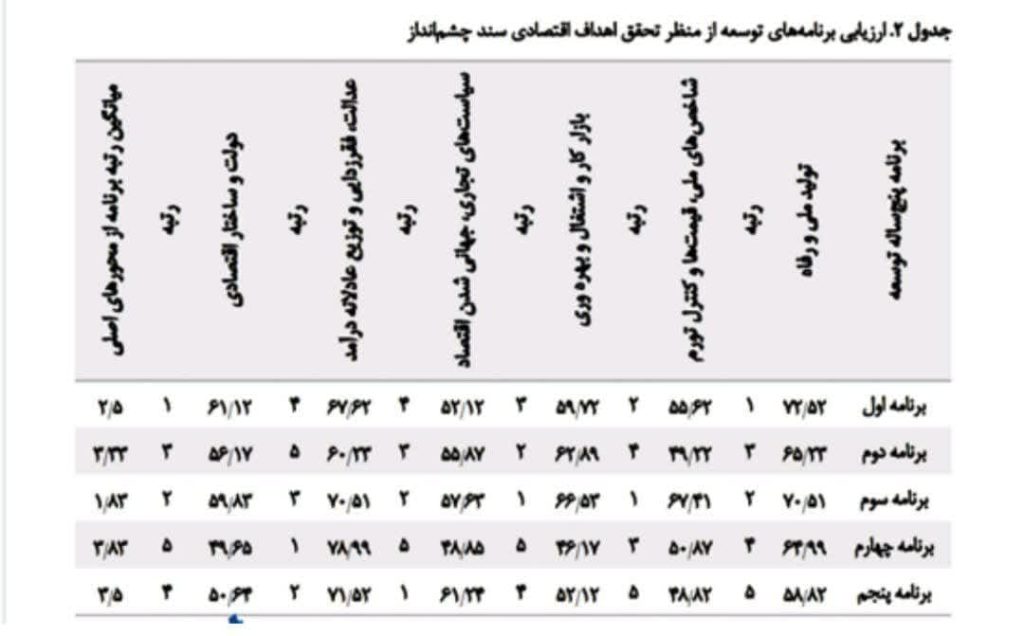 جدول ۲. ارزیابی برنامه‌های توسعه از منظر تحقق اهداف اقتصادی سند چشم‌انداز
برنامه پنج‌ساله توسعه
تولید ملی و رفاه
رتبه
شاخص‌های ملی، قیمت‌ها و کنترل تورم
رتبه
بازار کار و اشتغال و بهره وری
رتبه
سیاست‌های تجاری، جهانی شدن اقتصاد
رتبه
عدالت، فقرزدایی و توزیع عادلانه درآمد
رتبه
دولت و ساختار اقتصادی
رتبه
میانگین رتبه برنامه از محورهای اصلی
برنامه اول ۷۲/۵۲ ۱ ۵۵/۶۲ ۲ ۵۹/۷۲ ۳ ۵۲/۱۲ ۴ ۶۷/۶۲ ۴ ۶۱/۱۲ ۱ ۲/۵
برنامه دوم ۶۵/۲۳ ۳ ۴۹/۲۲ ۴ ۶۲/۸۹ ۲ ۵۵/۸۷ ۳ ۶۰/۲۳ ۵ ۵۶/۱۷ ۳ ۳/۳۳
برنامه سوم ۷۰/۵۱ ۲ ۶۷/۴۱ ۱ ۶۶/۵۳ ۱ ۵۷/۶۳ ۲ ۷۰/۵۱ ۳ ۵۹/۸۳ ۲ ۱/۸۳
برنامه چهارم ۶۴/۹۹ ۴ ۵۰/۸۷ ۳ ۴۶/۱۷ ۵ ۴۸/۸۵ ۵ ۷۸/۹۹ ۱ ۴۹/۶۵ ۵ ۳/۸۳
برنامه پنجم ۵۸/۸۲ ۵ ۴۸/۸۲ ۵ ۵۲/۱۲ ۴ ۶۱/۲۴ ۱ ۷۱/۵۲ ۲ ۵۰/۶۴ ۴ ۳/۵